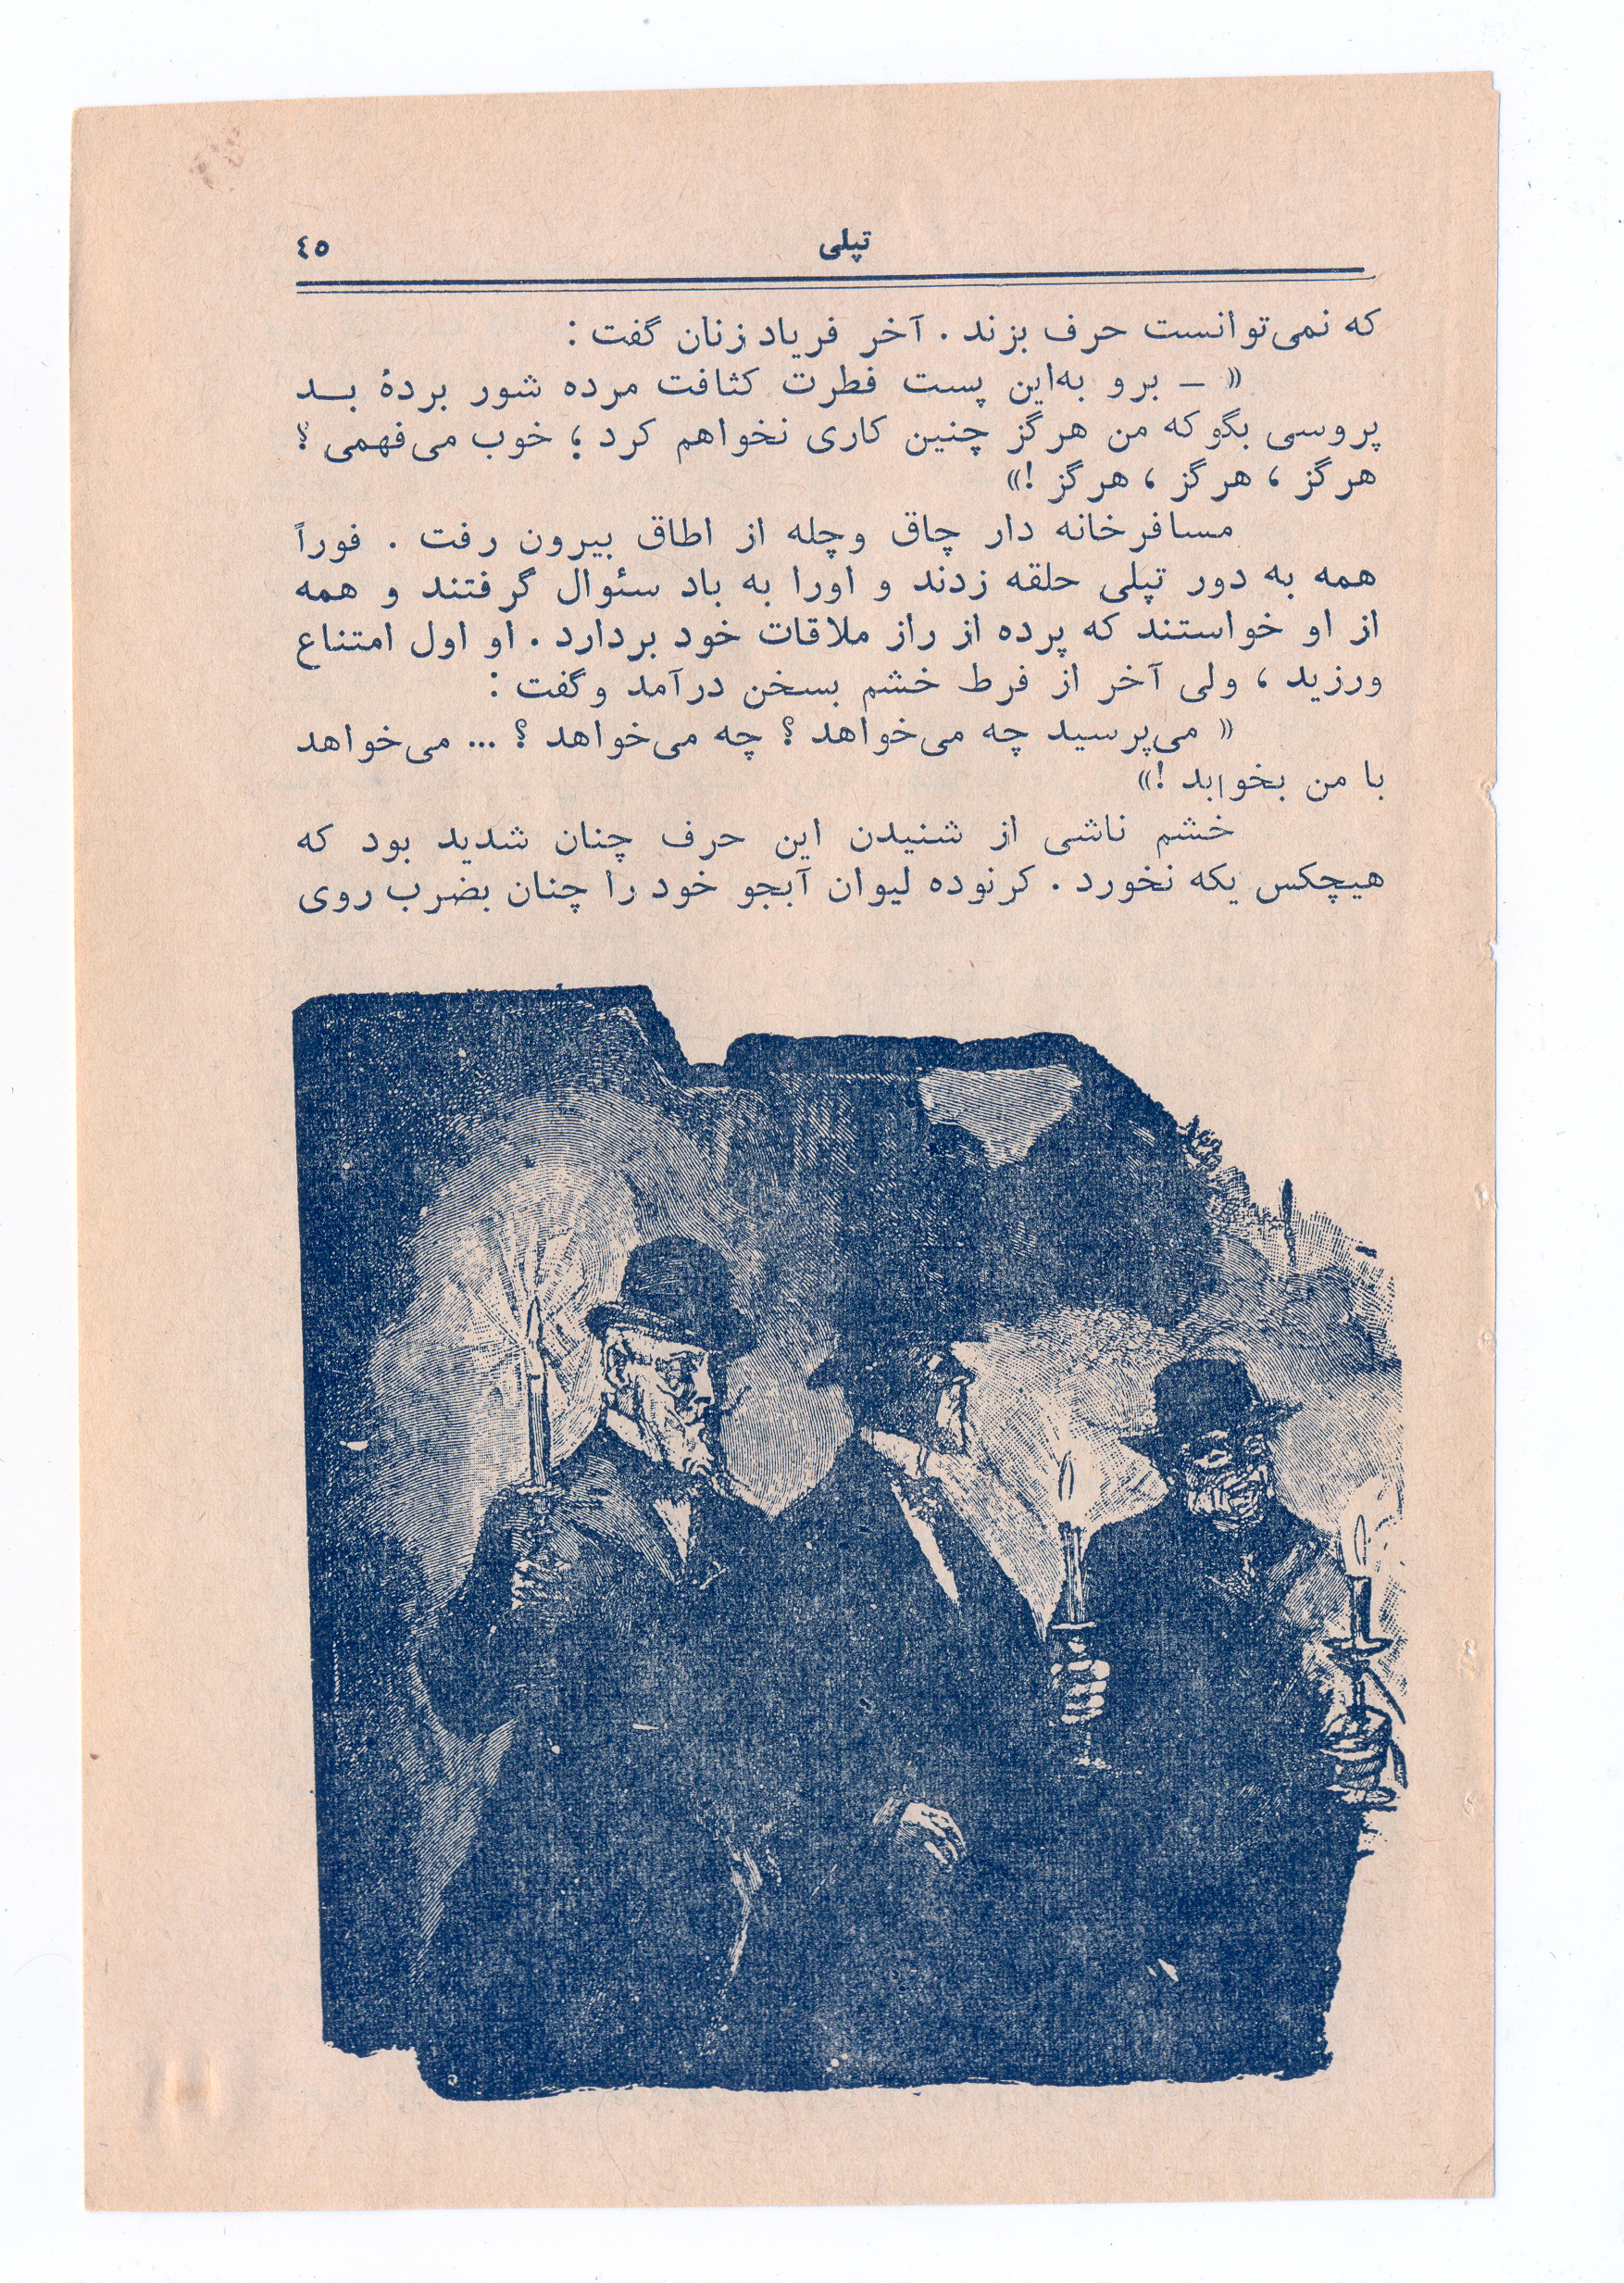 تپلی
٤٥
که نمی‌توانست حرف بزند . آخر فریاد زنان گفت :
« – برو به‌این پست فطرت کثافت مرده شور بردهٔ بــد
پروسی بگو که من هرگز چنین کاری نخواهم کرد ؛ خوب می‌فهمی ؟
هرگز ، هرگز ، هرگز !»
مسافرخانه دار چاق وچله از اطاق بیرون رفت . فوراً
همه به دور تپلی حلقه زدند و اورا به باد سئوال گرفتند و همه
از او خواستند که پرده از راز ملاقات خود بردارد . او اول امتناع
ورزید ، ولی آخر از فرط خشم بسخن درآمد وگفت :
« می‌پرسید چه می‌خواهد ؟ چه می‌خواهد ؟ ... می‌خواهد
با من بخوابد !»
خشم ناشی از شنیدن این حرف چنان شدید بود که
هیچکس یکه نخورد . کرنوده لیوان آبجو خود را چنان بضرب روی